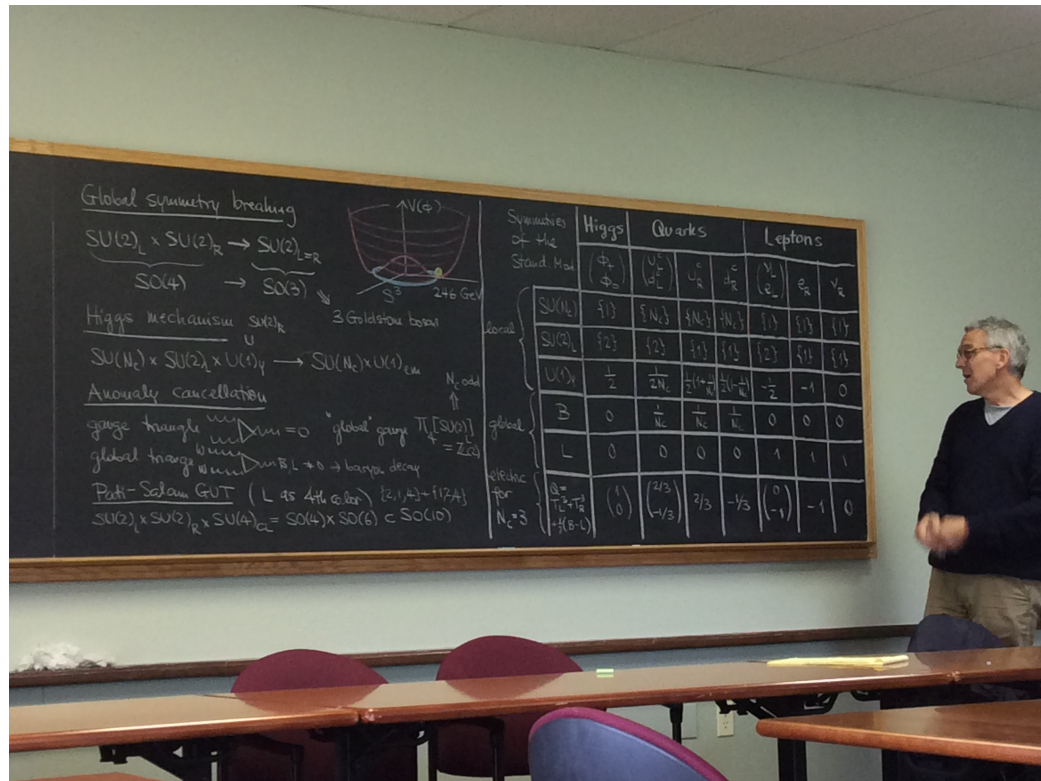 Global symmetry breaking
SU(2)_L × SU(2)_R → SU(2)_{L=R}
SO(4) → SO(3)
V(ϕ)
S³
246 GeV
3 Goldstone bosons
Higgs mechanism SU(2)_R
∪
SU(N_c) × SU(2)_L × U(1)_Y → SU(N_c) × U(1)_em
Anomaly cancellation
gauge triangle = 0
"global" gauge Π_4[SU(2)_L] = Z(2)
⇑
N_c odd
global triange W W B,L ≠ 0 → baryon decay
Pati-Salam GUT (L as 4th color) {2,1,4}+{1,2,4}
SU(2)_L × SU(2)_R × SU(4)_CL = SO(4) × SO(6) ⊂ SO(10)
Symmetries of the Stand. Mod Higgs Quarks Leptons
(ϕ_+ ϕ_0) (u_L^c d_L^c) u_R^c d_R^c (ν_L e_L) e_R ν_R
local
SU(N_c) {1} {N_c} {N_c} {N_c} {1} {1} {1}
SU(2)_L {2} {2} {1} {1} {2} {1} {1}
U(1)_Y 1/2 1/2N_c 1/2(1+1/N_c) 1/2(1/N_c -1/2 -1 0
global
B 0 1/N_c 1/N_c 1/N_c 0 0 0
L 0 0 0 0 1 1 1
electric for N_c=3
Q = T_L^3+T_R^3 +1/2(B-L) (1 0) (2/3 -1/3) 2/3 -1/3 (0 -1) -1 0